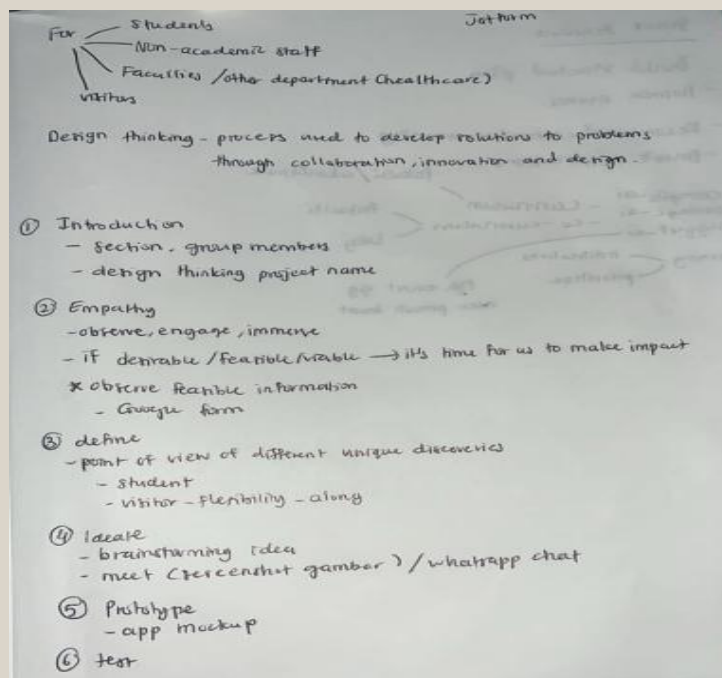 Jotform
For
Students
Non-academic staff
Faculties / other department (healthcare)
visitors
Design thinking - process used to develop solutions to problems
through collaboration, innovation and design.
① Introduction
- section, group members
- design thinking project name
② Empathy
- observe, engage, immerse
- if desirable/feasible/viable → it's time for us to make impact
* observe feasible information
- Google form
③ define
- point of view of different unique discoveries
- student
- visitor - flexibility - along
④ Ideate
- brainstorming idea
- meet (screenshot gambar) / whatsapp chat
⑤ Prototype
- app mockup
⑥ test